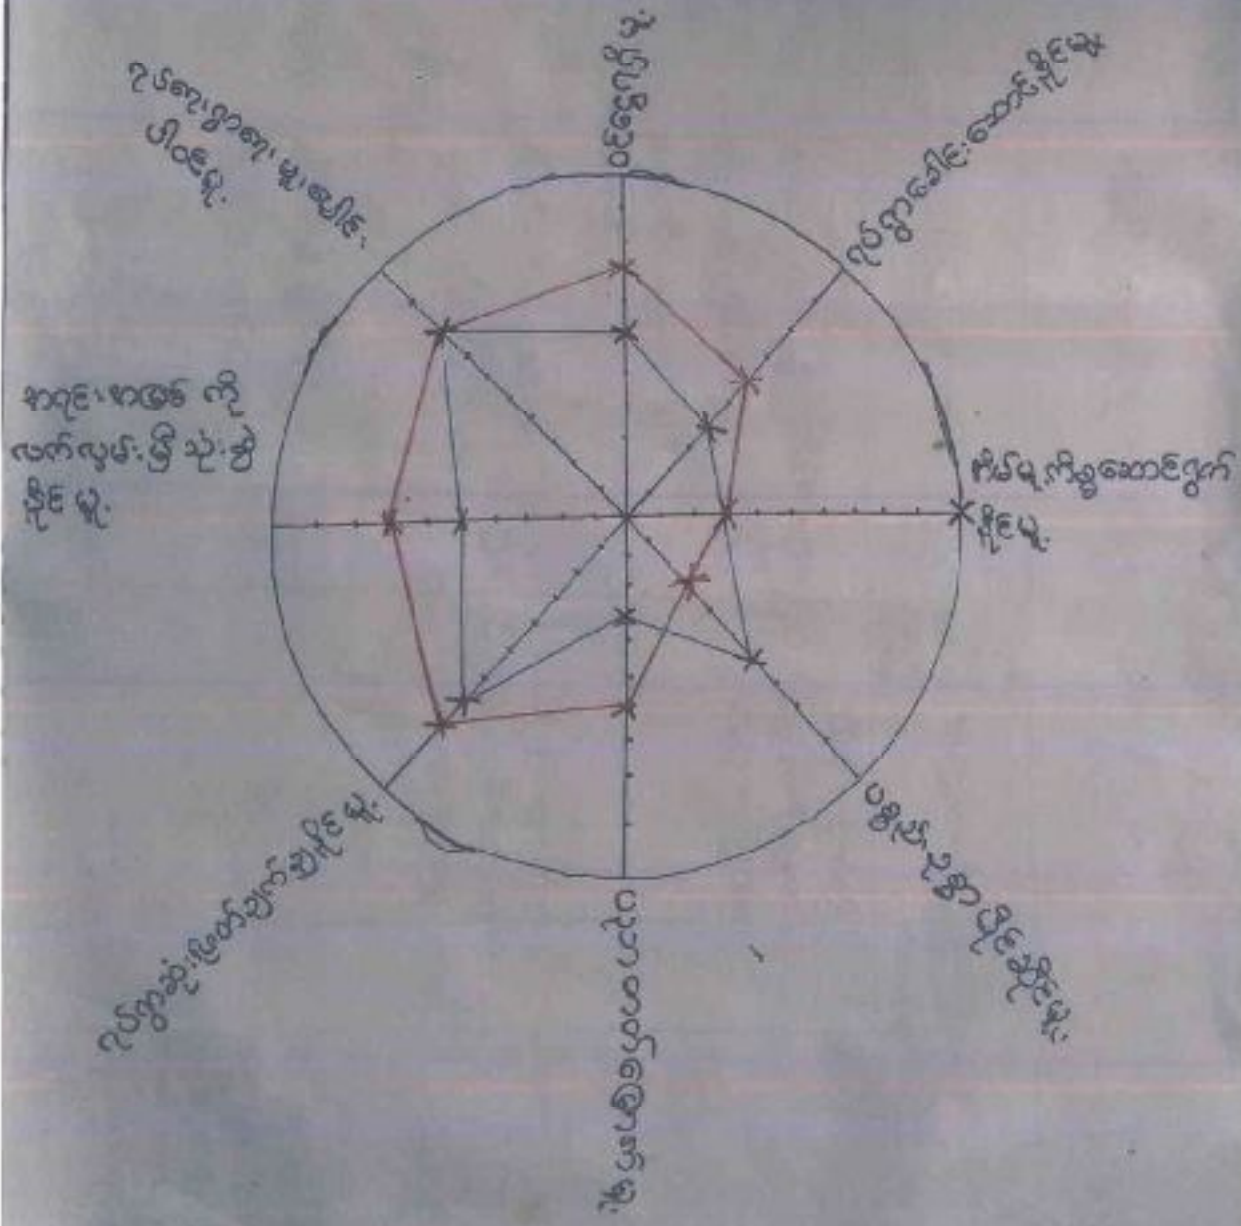 ဝင်ငွေရှိမှု
ရပ်ရွာခေါင်းဆောင်နိုင်မှု
အိမ်မှုကိစ္စဆောင်ရွက်
နိုင်မှု
ပစ္စည်းဥစ္စာပိုင်ဆိုင်မှု
ပညာတတ်မြောက်မှု
ရပ်ရွာဆုံးဖြတ်ချက်ချနိုင်မှု
အရင်းအမြစ် ကို
လက်လှမ်းမှီ သုံးစွဲ
နိုင်မှု
ရပ်ရေးရွာရေး မှု
ပါဝင်မှု